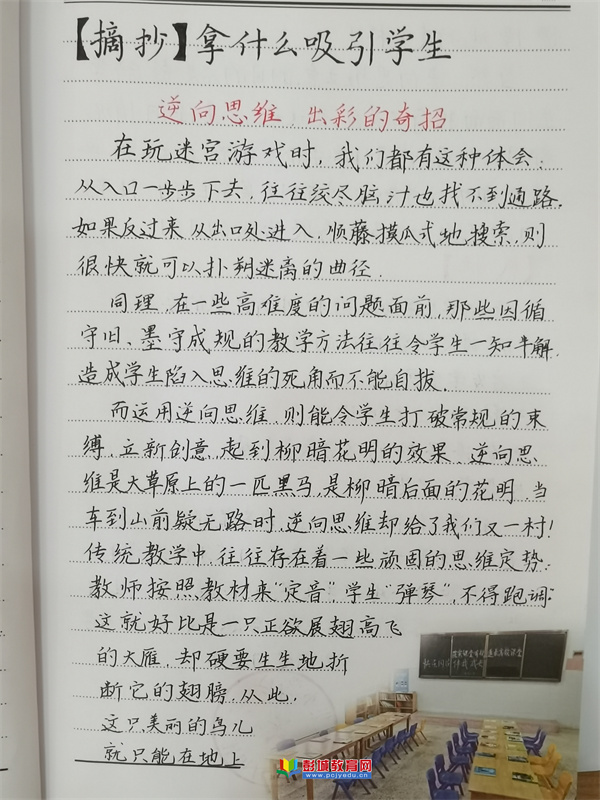 【摘抄】拿什么吸引学生
逆向思维,出彩的奇招
在玩迷宫游戏时,我们都有这种体会:
从入口一步步下去,往往绞尽脑汁也找不到通路,
如果反过来从出口处进入,顺藤摸瓜式地搜索,则
很快就可以扑朔迷离的曲径.
同理,在一些高难度的问题面前,那些因循
守旧、墨守成规的教学方法往往令学生一知半解,
造成学生陷入思维的死角而不能自拔.
而运用逆向思维,则能令学生打破常规的束
缚,立新创意,起到柳暗花明的效果、逆向思
维是大草原上的一匹黑马,是柳暗后面的花明,当
车到山前疑无路时,逆向思维却给了我们又一村!
传统教学中,往往存在着一些顽固的思维定势:
教师按照教材来"定音",学生"弹琴",不得跑调.
这就好比是一只正欲展翅高飞
的大雁,却硬要生生地折
断它的翅膀,从此,
这只美丽的鸟儿
就只能在地上
彭城教育网
www.pcjyedu.cn